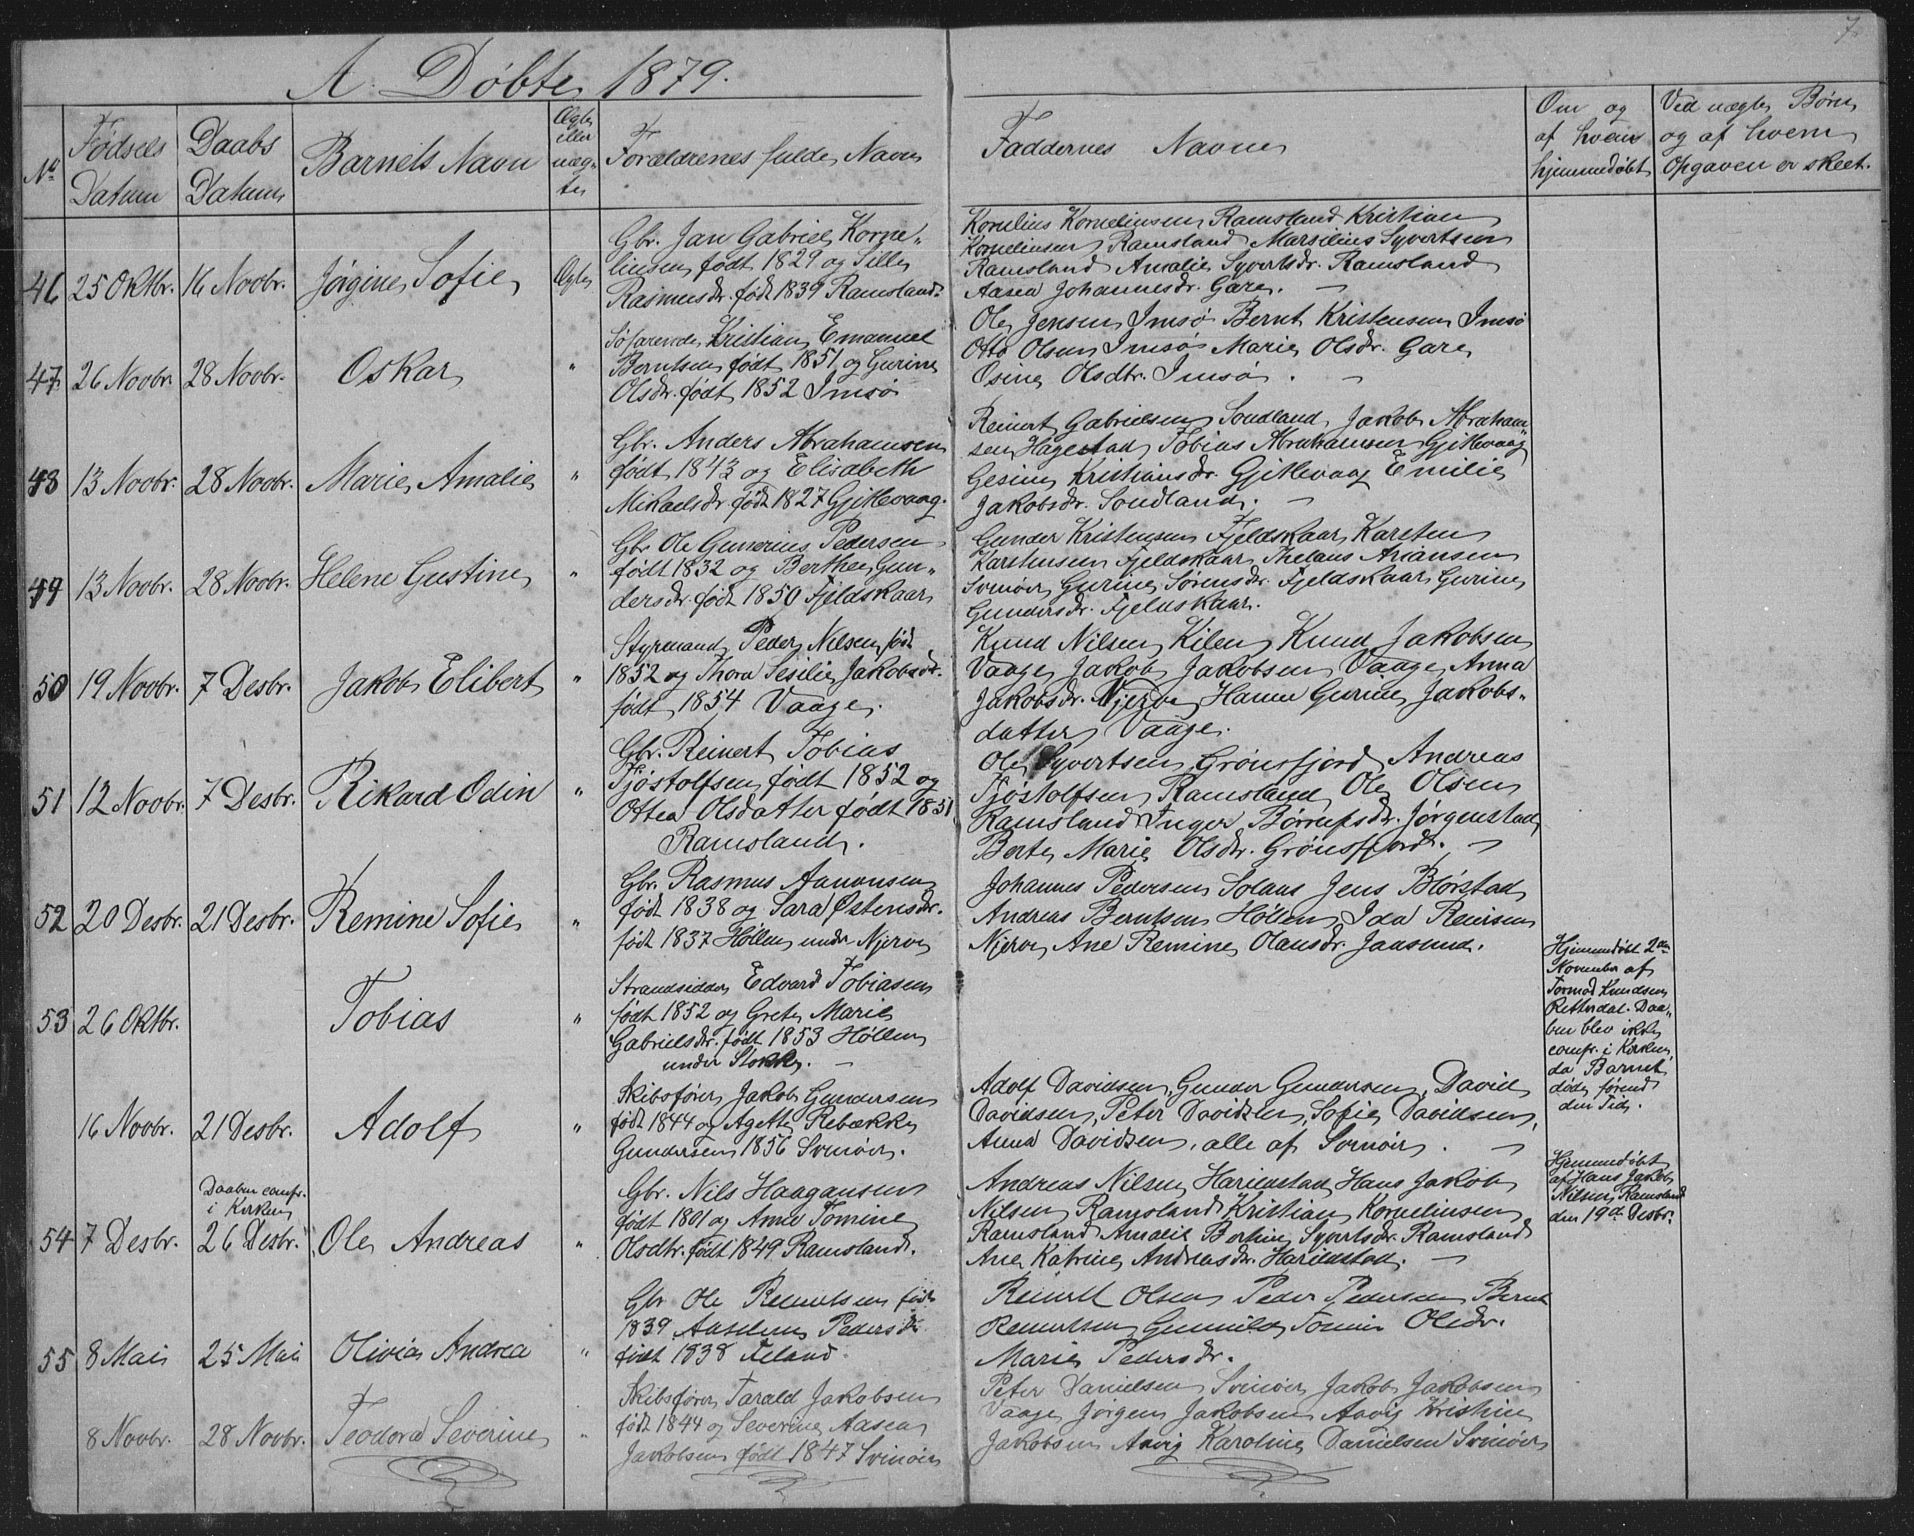 7.
A. Døbte 1879.
No
Fødsels
Datum
Daabs
Datum
Barnets Navn
Ægte
eller
uæg-
te
Forældrenes fulde Navn
Faddernes Navne
Om og
af hvem
hjemmedøbt
Ved uægte Børn
og af hvem
Opgaven er skeet.
46 25 Oktbr. 16 Novbr. Jørgine Sofie Ægte
Gbr. Jan Gabriel Korne-
liusen født 1829 og Sille
Rasmusdr. født 1839 Ramsland.
Kornelius Korneliusen Ramsland Kristian
Korneliusen Ramsland Marsilius Syvertsen
Ramsland Amalie Syvertsdr. Ramsland
Aasea Johannesdr. Gare. —
47 26 Novbr. 28 Novbr. Oskar "
Søfarende Kristian Emanuel
Berntsen født 1851 og Gurine
Olsdr. født 1852 Imsø
Ole Jensen Imsø Bernt Kristensen Imsø
Otto Olsen Imsø Marie Olsdr. Gare
Osine Olsdtr. Imsø . —
48 13 Novbr. 28 Novbr. Marie Amalie "
Gbr. Anders Abrahamsen
født 1843 og Elisabeth
Mikaelsdr. født 1827 Gjitlevaag.
Reinert Gabrielsen Sondland, Jakob Abraham-
sen Hagestad Tobias Abrahamsen Gjitlevaag
Gesine Kristiansdr. Gjitlevaag Emilie
Jakobsdr. Sondland. —
49 13 Novbr. 28 Novbr. Helene Gustine "
Gbr Ole Gunerius Pedersen
født 1832 og Berthe Gun-
dersdr. født 1850 Fjeldskaar
Gunder Kristensen Fjeldskaar, Karsten
Karstensen Fjeldskaar, Ariansen
Svinør, Gurine Sørensdr. Fjeldskaar, Gurine
Gundersdr. Fjeldskaar.
50 19 Novbr. 7 Desbr. Jakob Elibert "
Styrmand Peder Nilsen født
1852 og Thora Sesilie Jakobsdr.
født 1854 Vaage.
Knud Nilsen Kilen Knud Jakobsen
Vaage Jakob Jakobsen Vaage, Anna
Jakobsdr. Njerve Hanne Gurine Jakobs-
datter Vaage.
51 12 Novbr. 7 Desbr. Rikard Odin "
Gbr. Reinert Tobias
Tjøstolfsen født 1852 og
Ottea Olsdatter født 1851
Ramsland.
Ole Syvertsen Grønsfjord Andreas
Tjøstolfsen Ramsland Ole Olsen
Ramsland Inger Børrufsdr. Jørgenstad
Berte Marie Olsdr. Grønsfjord. —
52 20 Desbr. 21 Desbr. Remine Sofie "
Gbr. Rasmus Aanonsen
født 1838 og Sara Østensdr.
født 1837 Høllen under Njerve
Johannes Pedersen Solaas Jens Blørstad
Andreas Berntsen Høllen, Ida Reiersen
Njerve, Ane Remine Olausdr. Jaasund.
53 26 Oktbr. Tobias "
Strandsidder Edvard Tobiasen
født 1852 og Grete Marie
Gabrielsdr. født 1853 Høllen
under Stokke. —
Hjemmedøbt 2den
November af
Tormod Knudsen
Retterdal. Daa-
ben blev ikke
comfr. i Kirken,
da Barnet
døde førend
den Tid.
16 Novbr. 21 Desbr. Adolf "
Skibsfører Jakob Gundersen
født 1844 og Agette Rebækka
Gundersen 1856 Svinør.
Adolf Davidsen, Gunder Gundersen, David
Davidsen, Peter Davidsen, Sofie Davidsen,
Anna Davidsen, alle af Svinør. —
54 7 Desbr. Daaben comfr.
i Kirken
26 Desbr. Ole Andreas "
Gbr. Nils Haagansen
født 1801 og Anne Tomine
Olsdtr. født 1849 Ramsland.
Andreas Nilsen Harienstad Hans Jakob
Nilsen Ramsland Kristian Korneliusen
Ramsland Amalie Bertine Syvertsdr. Ramsland
Ane Katrine Andreasdr. Harienstad. —
Hjemmedøbt
af Hans Jakob
Nilsen Ramsland
den 19de Desbr.
55 8 Mai 25 Mai Olivia Andrea "
Gbr Ole Reinertsen født
1839 Pedersdr
født 1838 Feland.
Reinert Olsen Peder Pedersen Bernt
Reinertsen Gunnild Tomine Olsdr.
Marie Pedersdr.
8 Novbr. 28 Novbr. Teodora Severine "
Skibsfører Tarald Jakobsen
født 1844 og Severine Aasea
Jakobsen født 1847 Svinør
Peter Danielsen Svinør Jakob Jakobsen
Vaage Jørgen Jakobsen Aavig Kristine
Jakobsen Aavig Karoline Danielsen Svinør